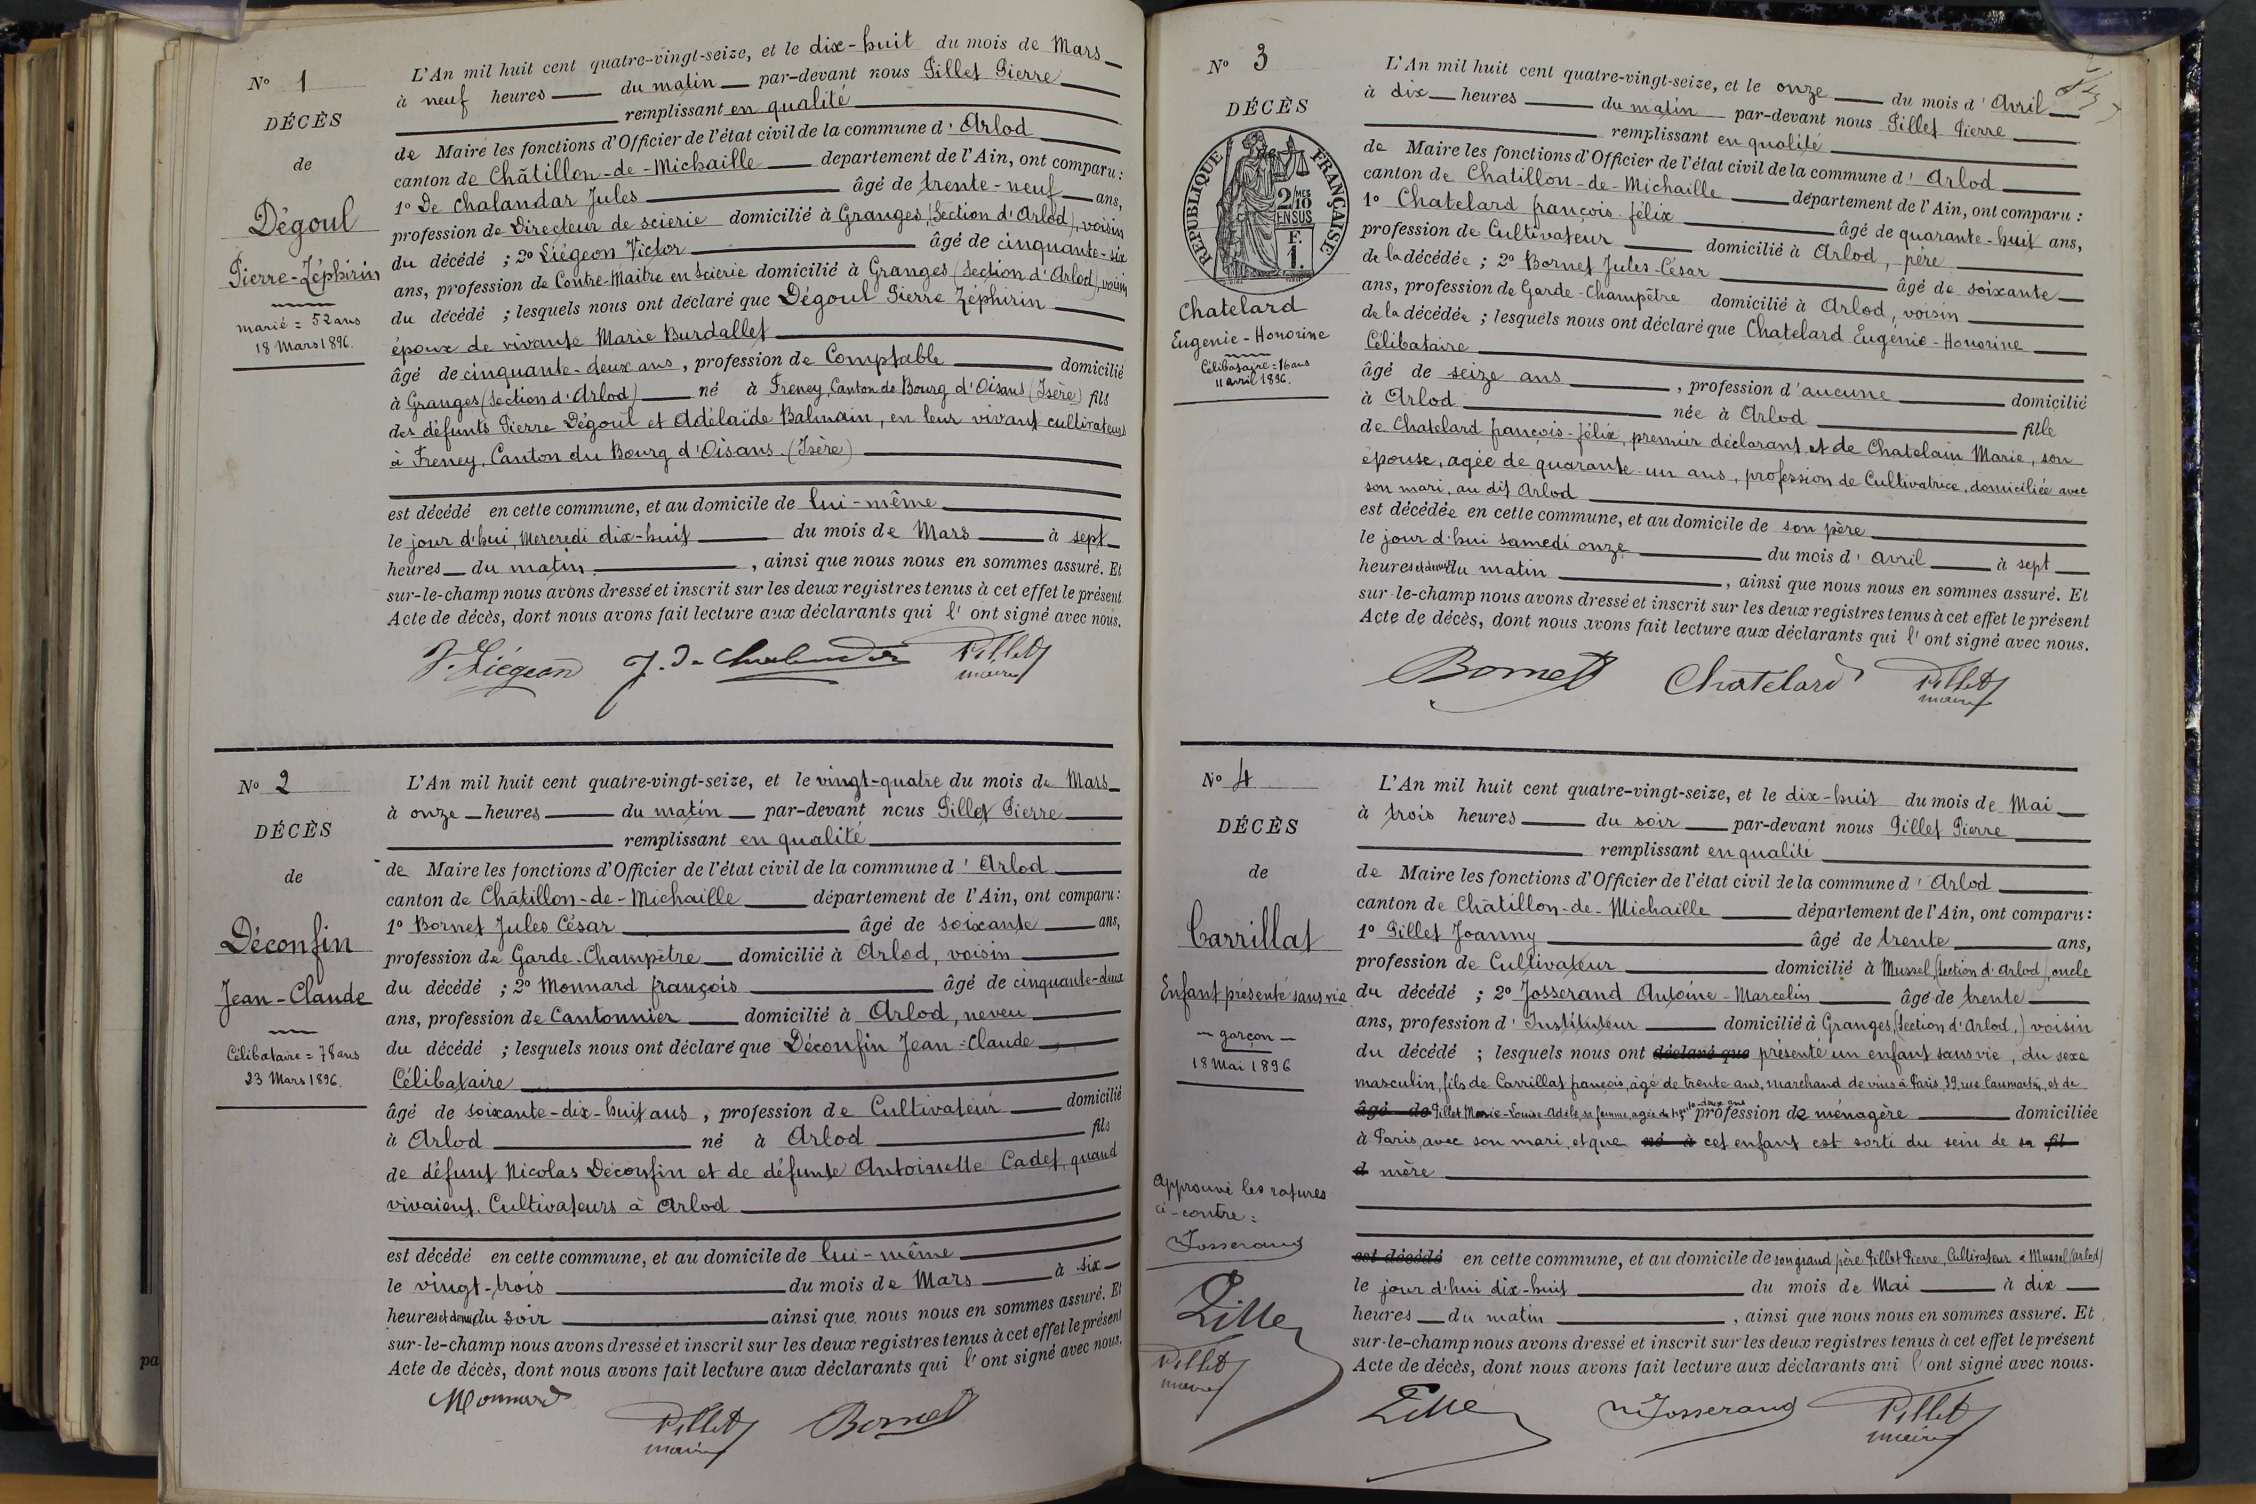 N° 1
DÉCÈS
de
Dégoul
Pierre-Zéphirin
marié = 52 ans
18 Mars 1896.
L'An mil huit cent quatre-vingt-seize, et le dix-huit du mois de Mars
à neuf heures du matin par-devant nous Pillet Pierre
remplissant en qualité
de Maire les fonctions d'Officier de l'état civil de la commune d'Arlod
canton de Châtillon-de-Michaille departement de l'Ain, ont comparu :
1° De Chalandar Jules âgé de trente-neuf ans,
profession de Directeur de scierie domicilié à Granges, (Section d'Arlod), voisin
du décédé ; 2° Liégeon Victor âgé de cinquante-six
ans, profession de Contre-Maitre en Scierie domicilié à Granges (Section d'Arlod), voisin
du décédé ; lesquels nous ont déclaré que Dégoul Pierre Zéphirin
époux de vivante Marie Burdallet
âgé de cinquante-deux ans, profession de Comptable domicilié
à Granges (Section d'Arlod) né à Freney, Canton de Bourg d'Oisans (Isère) fils
des défunts Pierre Dégoul et Adélaïde Balmain, en leur vivant cultivateurs
à Freney, Canton du Bourg d'Oisans. (Isère)
est décédé en cette commune, et au domicile de lui-même
le jour d'hui, Mercredi dix-huit du mois de Mars à sept
heures du matin, ainsi que nous nous en sommes assuré. Et
sur-le-champ nous avons dressé et inscrit sur les deux registres tenus à cet effet le présent
Acte de décès, dont nous avons fait lecture aux déclarants qui l'ont signé avec nous.
V. Liégeon J. De Chalandar Pillet
maire
N° 2
DÉCÈS
de
Déconfin
Jean-Claude
Célibataire = 78 ans
23 Mars 1896.
L'An mil huit cent quatre-vingt-seize, et le vingt-quatre du mois de Mars
à onze heures du matin par-devant nous Pillet Pierre
remplissant en qualité
de Maire les fonctions d'Officier de l'état civil de la commune d'Arlod
canton de Châtillon-de-Michaille département de l'Ain, ont comparu :
1° Bornet Jules César âgé de soixante ans,
profession de Garde-Champêtre domicilié à Arlod, voisin
du décédé ; 2° Monnard françois âgé de cinquante-deux
ans, profession de Cantonnier domicilié à Arlod, neveu
du décédé ; lesquels nous ont déclaré que Déconfin Jean-Claude
Célibataire
âgé de soixante-dix-huit ans, profession de Cultivateur domicilié
à Arlod né à Arlod fils
de défunt Nicolas Déconfin et de défunte Antoinette Cadet, quand
vivaient, Cultivateurs à Arlod
est décédé en cette commune, et au domicile de lui-même
le vingt-trois du mois de Mars à six
heures et demie du soir ainsi que nous nous en sommes assuré. Et
sur-le-champ nous avons dressé et inscrit sur les deux registres tenus à cet effet le présent
Acte de décès, dont nous avons fait lecture aux déclarants qui l'ont signé avec nous.
Monnard Pillet Bornet
maire
N° 3
DÉCÈS
RÉPUBLIQUE FRANÇAISE
2/10
EN SUS
F.
1.
Chatelard
Eugénie-Honorine
Célibataire = 16 ans
11 avril 1896.
L'An mil huit cent quatre-vingt-seize, et le onze du mois d'Avril
à dix heures du matin par-devant nous Pillet Pierre
remplissant en qualité
de Maire les fonctions d'Officier de l'état civil de la commune d'Arlod
canton de Chatillon-de-Michaille département de l'Ain, ont comparu :
1° Chatelard françois-félix âgé de quarante-huit ans,
profession de Cultivateur domicilié à Arlod, père
de la décédée ; 2° Bornet Jules-César âgé de soixante
ans, profession de Garde-Champêtre domicilié à Arlod, voisin
de la décédée ; lesquels nous ont déclaré que Chatelard Eugénie-Honorine
Célibataire
âgé de seize ans, profession d'aucune domicilié
à Arlod née à Arlod fille
de Chatelard françois-félix, premier déclarant, et de Chatelain Marie, son
épouse, agée de quarante-un ans, profession de Cultivatrice, domiciliée avec
son mari, au dit Arlod
est décédée en cette commune, et au domicile de son père
le jour d'hui samedi onze du mois d'avril à sept
heures et demie du matin, ainsi que nous nous en sommes assuré. Et
sur-le-champ nous avons dressé et inscrit sur les deux registres tenus à cet effet le présent
Acte de décès, dont nous avons fait lecture aux déclarants qui l'ont signé avec nous.
Bornet Chatelard Pillet
maire
N° 4
DÉCÈS
de
Carrillat
Enfant présenté sans vie
garçon
18 Mai 1896
approuvé les ratures
ci-contre :
Josserand
Pillet
Pillet
maire
L'An mil huit cent quatre-vingt-seize, et le dix-huit du mois de Mai
à trois heures du soir par-devant nous Pillet Pierre
remplissant en qualité
de Maire les fonctions d'Officier de l'état civil de la commune d'Arlod
canton de Châtillon-de-Michaille département de l'Ain, ont comparu :
1° Pillet Joanny âgé de trente ans,
profession de Cultivateur domicilié à Mussel, (Section d'Arlod), oncle
du décédé ; 2° Josserand Antoine-Marcelin âgé de trente
ans, profession d'Instituteur domicilié à Granges, (Section d'Arlod,) voisin
du décédé ; lesquels nous ont déclaré que présenté un enfant sans vie, du sexe
masculin, fils de Carrillat françois, âgé de trente ans, marchand de vins à Paris, 39, rue Caumartin, et de
âgé de Pillet Marie-Louise-Adèle, sa femme, agée de trente-deux ans profession de ménagère domiciliée
à Paris, avec son mari, et que né à cet enfant est sorti du sein de sa fil
d mère
est décédé en cette commune, et au domicile de son grand père Pillet Pierre, Cultivateur à Mussel (Arlod)
le jour d'hui dix-huit du mois de Mai à dix
heures du matin, ainsi que nous nous en sommes assuré. Et
sur-le-champ nous avons dressé et inscrit sur les deux registres tenus à cet effet le présent
Acte de décès, dont nous avons fait lecture aux déclarants qui l'ont signé avec nous.
Pillet Josserand Pillet
maire